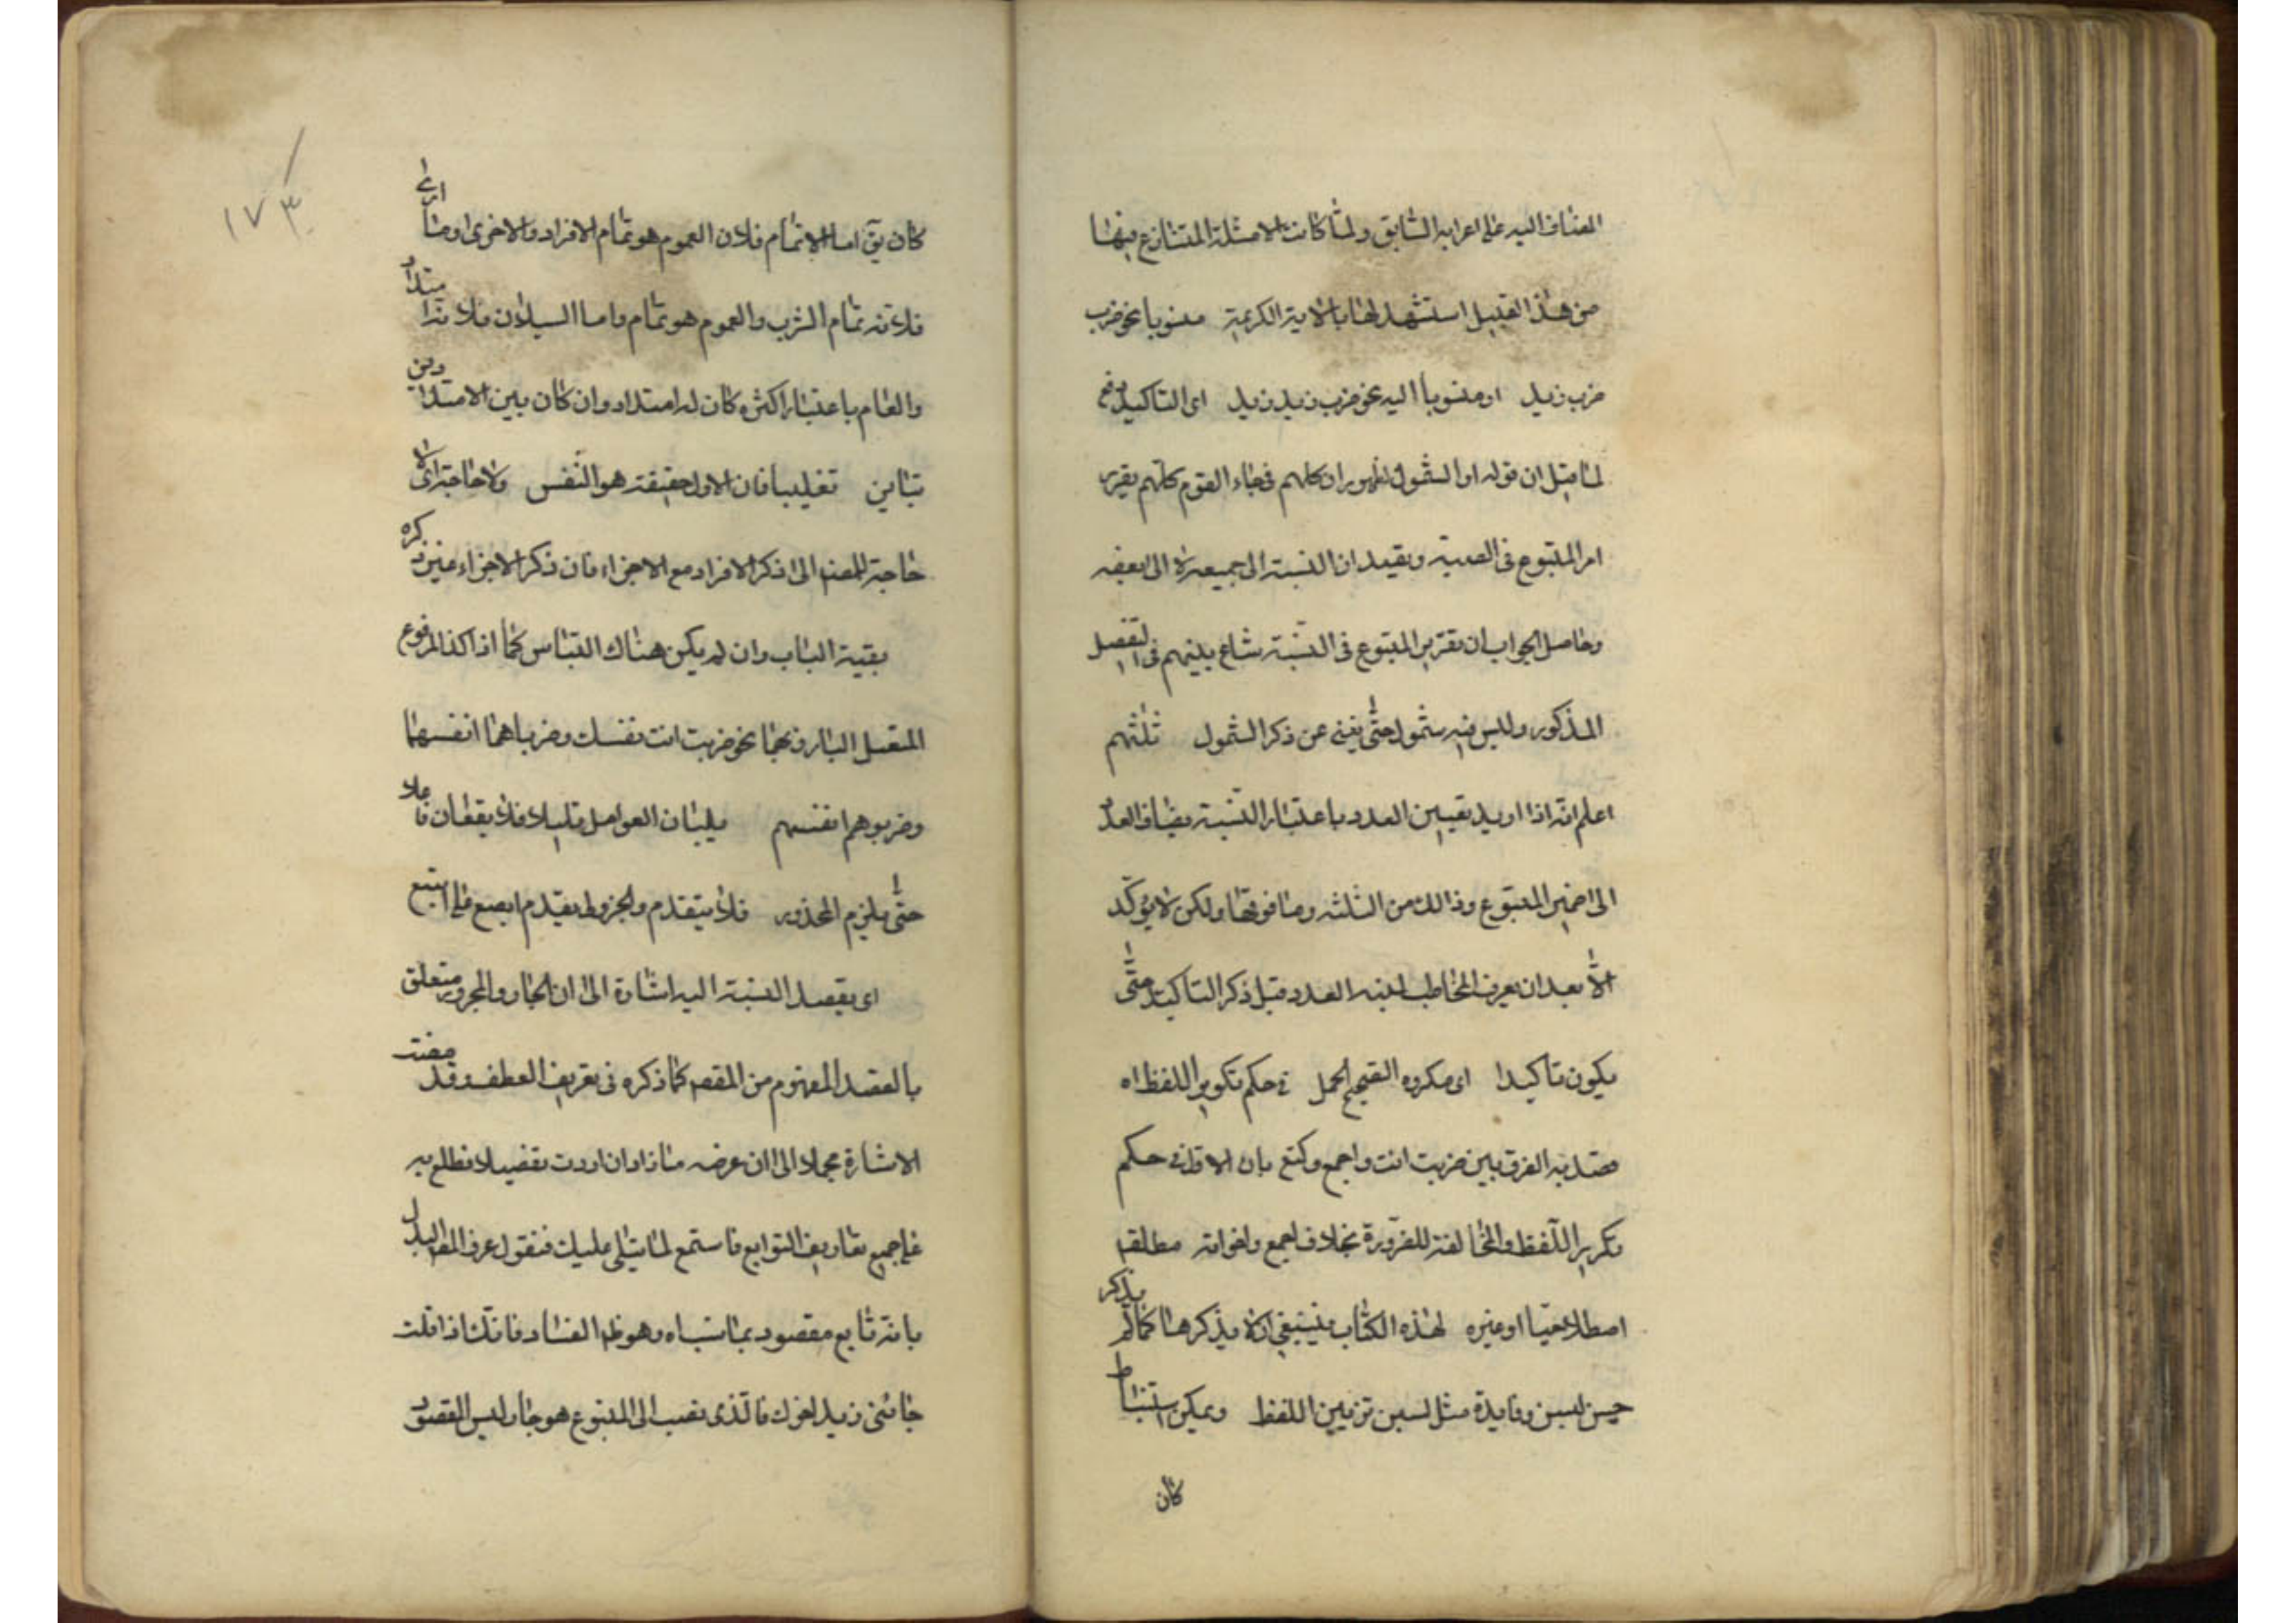 المضاف اليه على اعرابه السابق ولما كانت الامثلة المتنازع فيها
من هذا القبيل استشهد لها بالاية الكريمة منسوبا نحو ضرب
ضرب زيد او منسوبا اليه نحو ضرب زيد زيد اى التاكيد يرفع
لما قيل ان قوله او الشمول لظهور ان كلهم فى جاء القوم كلهم يقرر
امر المتبوع فى النسبة ويفيد ان النسبة الى جميعه لا الى بعضه
وحاصل الجواب ان تقرير المتبوع فى النسبة شاع بينهم فى التفصيل
المذكور وليس فيه شمول حتى يغنى عن ذكر الشمول ثلثتهم
اعلم انه اذا اريد تعيين العدد باعتبار النسبة يضاف العدد
الى ضمير المتبوع وذالك من الثلثة وما فوقها ولكن لا يؤكد
الا بعد ان يعرف المخاطب العدد قبل ذكر التاكيد حتى
يكون تاكيدا اى مكروه القبيح الحمل فى حكم تكرير اللفظ اه
قصد به الفرق بين ضربت انت واجمع وكتع بان الاول فى حكم
تكرير اللفظ والمخالفة للضرورة بخلاف اجمع واخواته مطلقا
اصطلاحيا او غيره لهذه الكتاب فينبغى ان لا يذكرها كما لم يذكر
حسن بسن وفايدة مثل بسن تزيين اللفظ ويمكن استنباط
كان
١٧٣
كان يق اما الاتمام فلان العموم هو تمام الافراد والاخرى اوصا ارى
فلانه تمام الشرب والعموم هو تمام واما السيلان فلانه امتداد
والعام باعتبار اكثره كان له امتداد وان كان بين الامتدادين
تباين تغليبا فان الاول حقيقة هو النفس ولا حاجة اى لا
حاجة للمصنف الى ذكر الافراد مع الاجزاء فان ذكر الاجزاء عين ذكره
بقية الباب وان لم يكن هناك التباس كما اذا اكد المرفوع
المتصل البارز بهما نحو ضربت انت نفسك وضرباهما انفسهما
وضربوهم انفسهم يليان العوامل قليلا فلا يقعان فاعلا
حتى يلزم المحذور فلا يتقدم ولا يجوز تقديم ابصع على ابتع
اى يقصد النسبة اليه اشارة الى ان الجار والمجرور متعلق
بالقصد المفهوم من المقصود كما ذكره فى تعريف العطف وقد مضت
الاشارة مجملا الى ان غرضه ماذا وان اردت تفصيلا تطلع به
على جميع تعاريف التوابع فاستمع لما يتلى عليك فنقول عرف المصنف البدل
بانه تابع مقصود بما نسب اه وهو ظاهر الفساد فانك اذا قلت
جائنى زيد اخوك فالذى نسب الى المتبوع هو جاء وليس المقصود